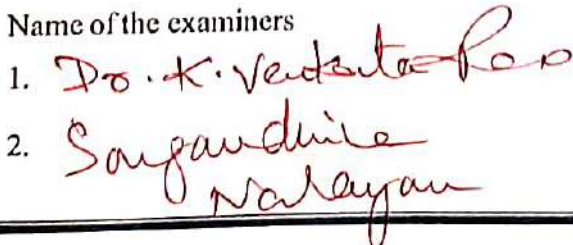 Name of the examiners
1. Dr. K. Venkata Rao
2. Sougandhika
Narayan